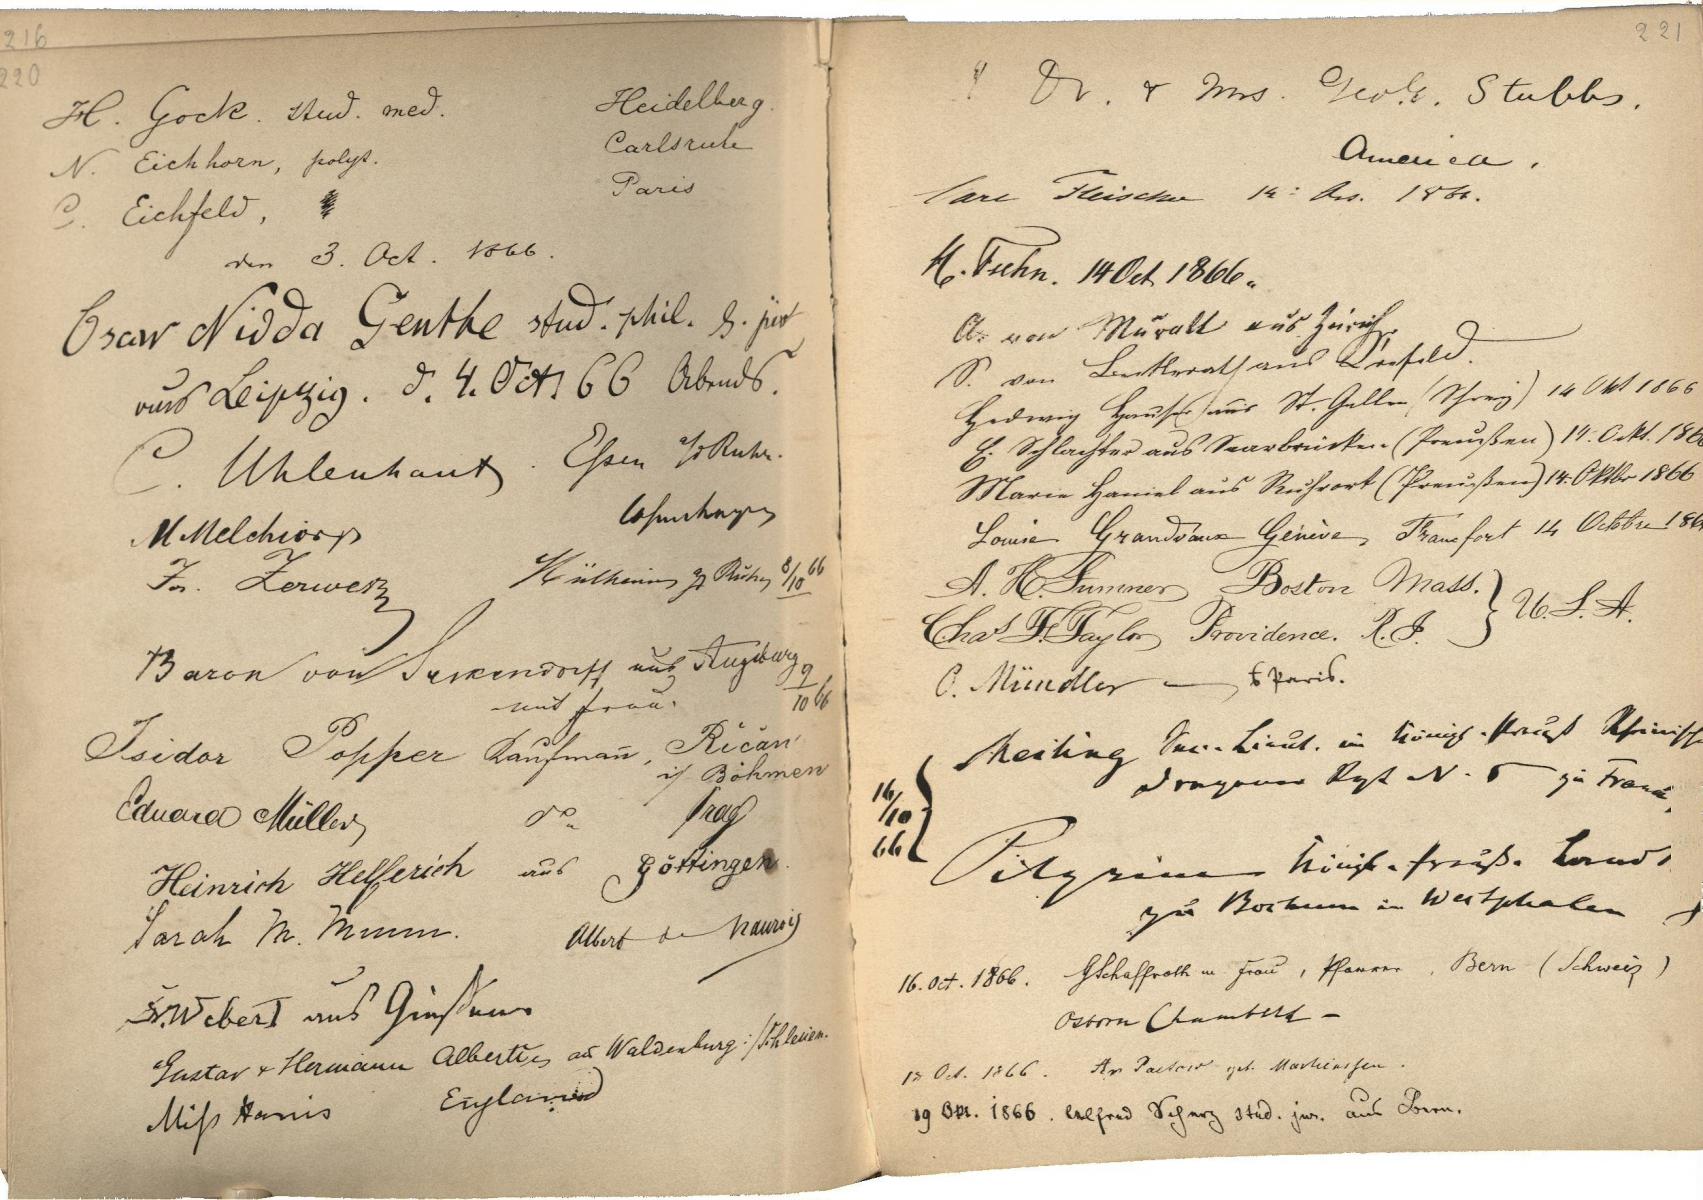 216
220
H. Gock. stud. med. Heidelberg.
N. Eichhorn, polyt. Carlsruhe
C. Eichfeld, Paris
den 3. Oct. 1866.
Oscar Nidda Genthe stud. phil. & jur
aus Leipzig. d. 4. Oct. 66 Abends.
C. Uhlenhaut. Eßen a/d Ruhr.
M Melchior Copenhagen
Fr. Zerwes Mülheim a/d Ruhr 8/10 66
Baron von Seckendorff aus Augsburg 9/10 66
mit Frau.
Isidor Popper Kaufmann, Ričan
i/ Böhmen
Eduard Müller do Prag
Heinrich Helferich aus Göttingen.
Sarah M. Mumm. Albert de Naurois
Fr. Weber aus
Gustav & Hermann Alberti aus Waldenburg i/Schlesien.
Miſs Harris England
221
Dr. & Mrs. Geo. E. Stubbs.
America.
Carl Fleischer 1866.
14 Oct 1866.
A. von Muralt aus Zürich.
S. von Beckerath aus Crefeld.
Hedwig Hauser aus St. Gallen (Schweiz) 14 Okt 1866
E. Schlachter aus Saarbrücken (Preußen) 14. Okt. 186
Marie Haniel aus Ruhrort (Preußen) 14. Oktbr 1866
Louise Grandvaux Genève, Francfort 14 Octobre 186
A. H. Sumner Boston Mass. } U.S.A.
Chas F. Taylor Providence. R.I.
O. Mündler — Paris.
Meiling Sec. Lieut. im Königl. Preuß Rheinische
Dragoner Rgt N. 5 zu Frank
16/10 66
Pilgrim Königl. Preuß. Land
zu Bochum in Westphalen
16. Oct. 1866. GSchaffroth m Frau, Pfarrer, Bern (Schweiz)
Osborn Chambers —
18 Oct. 1866. Pastor
19 Okt. 1866. Alfred Scherz stud. jur. aus Bern.